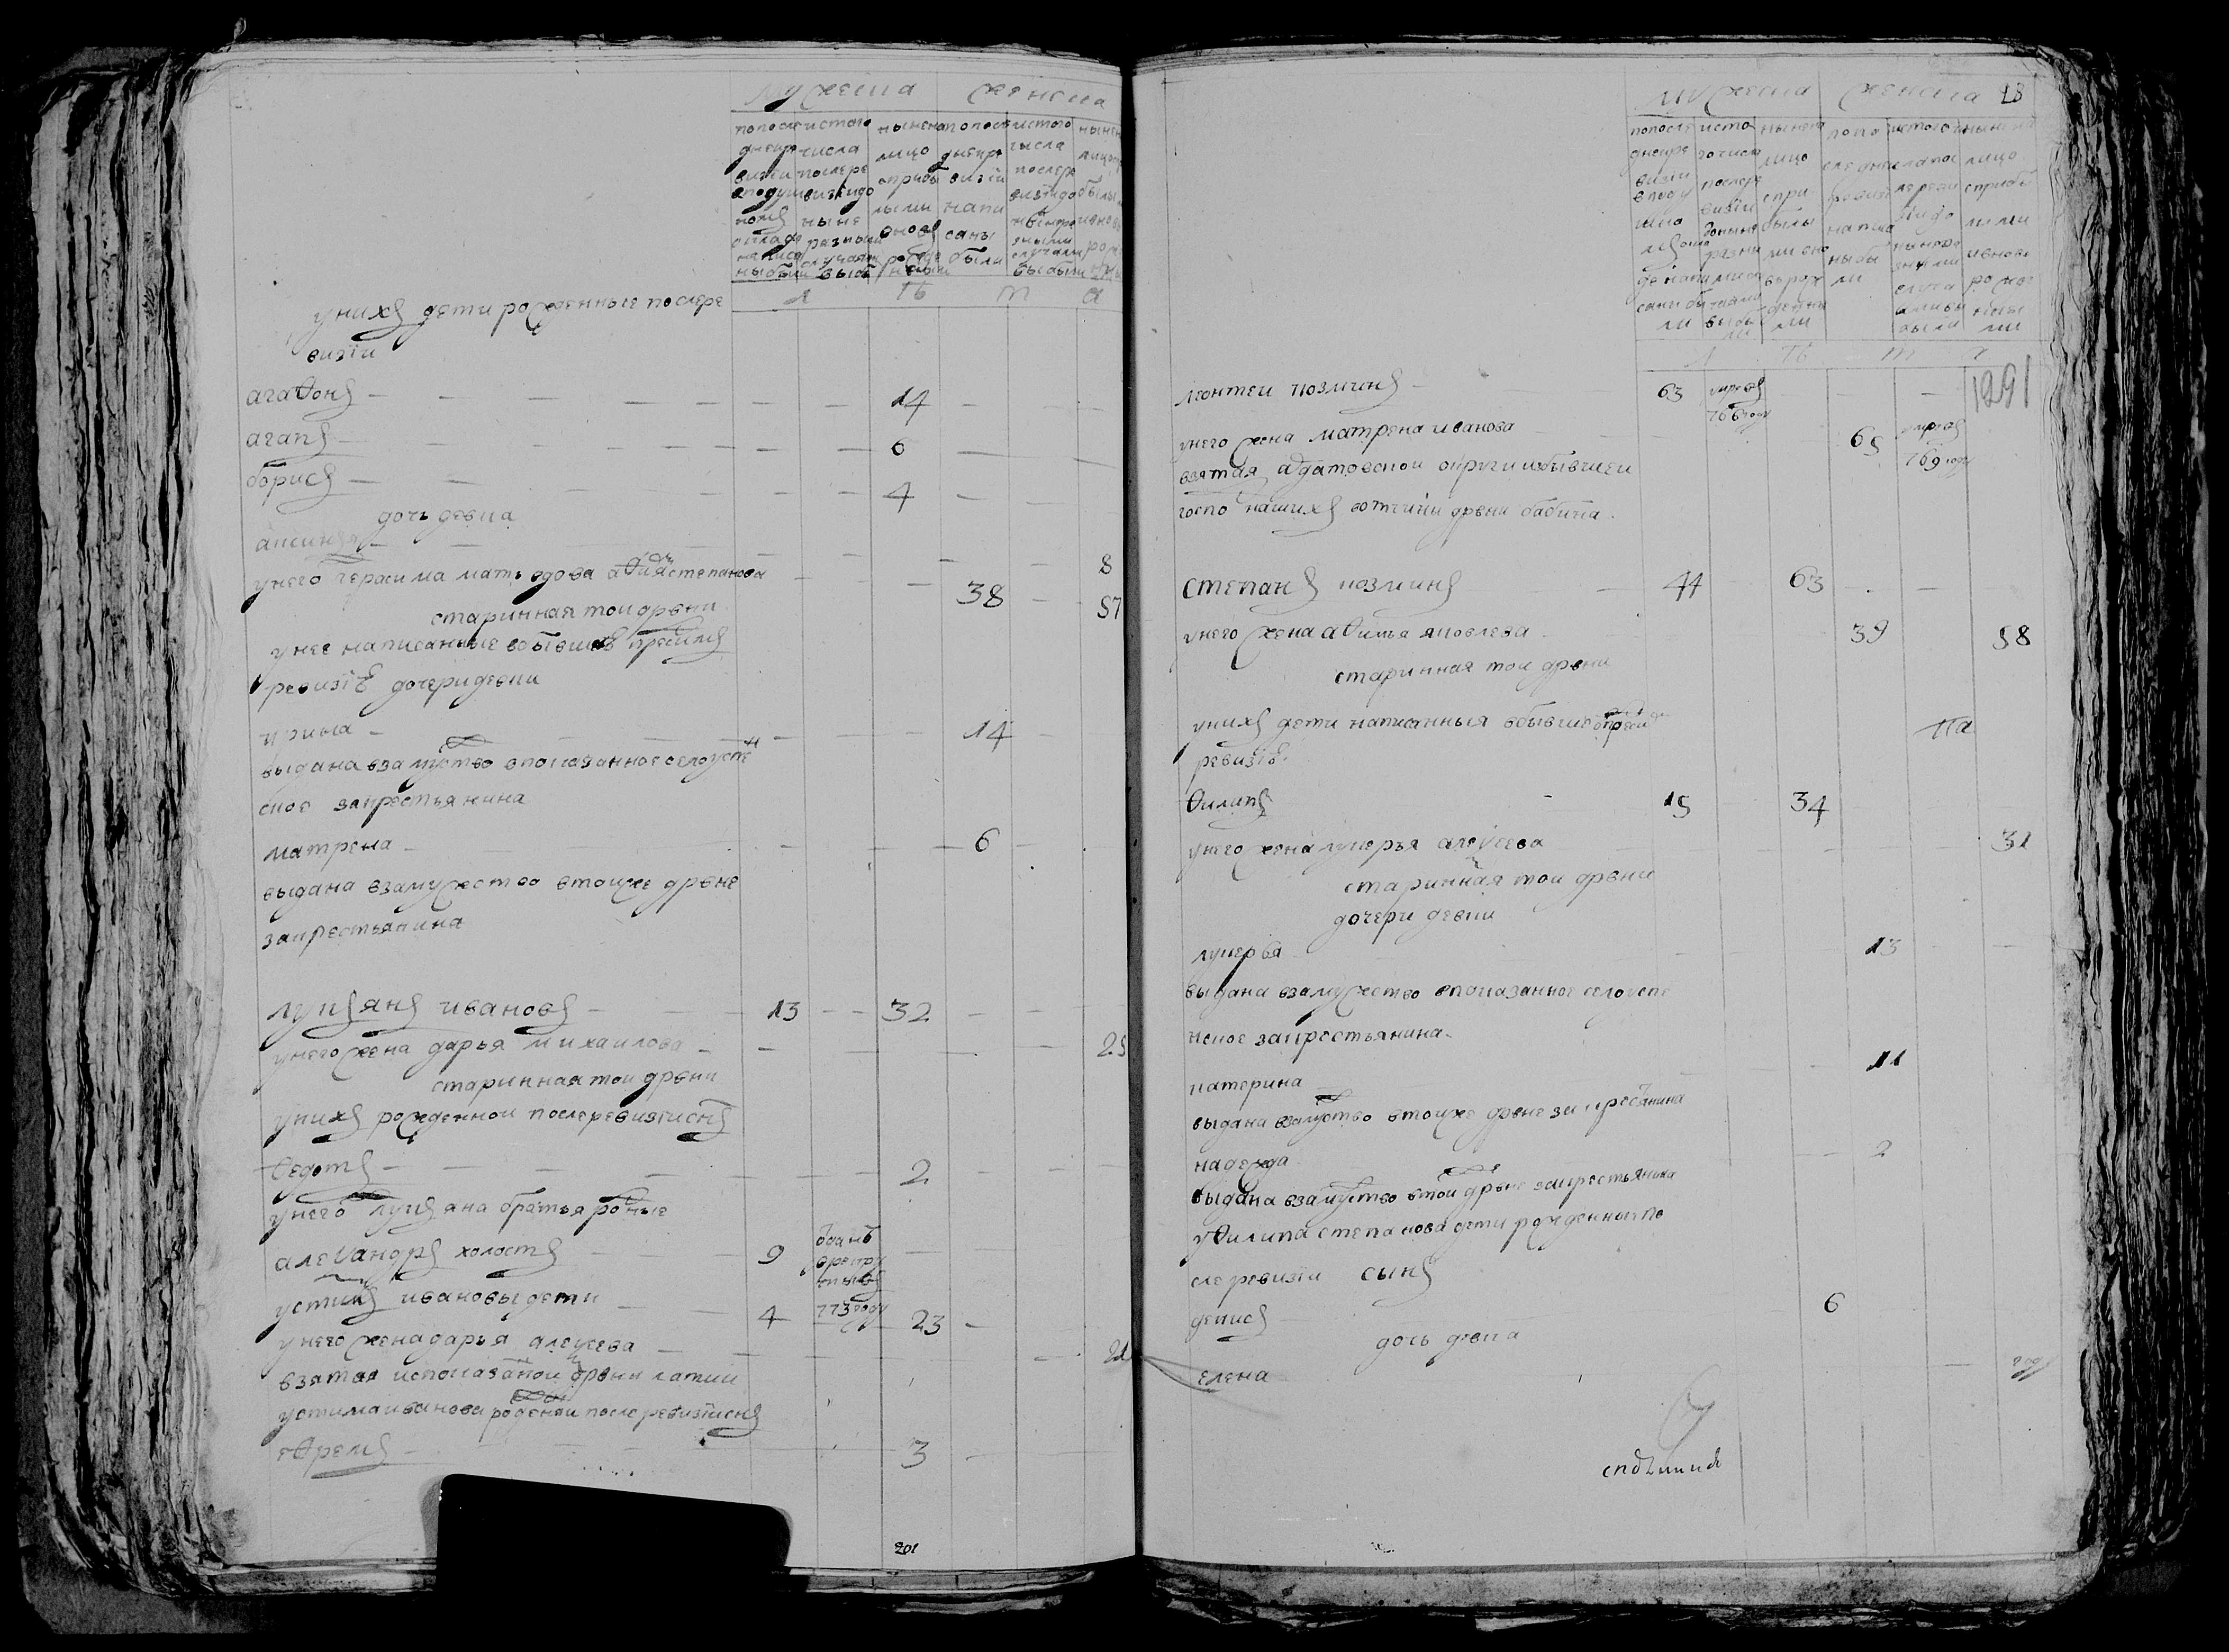 мужеска женска
попосле
днеи ре
визии
вподуш
номъ
окладе
написа
ны были
истого
числа
послере
визии до
ныне
разными
случаи
выбы
ныне на
лицо
сприбы
лыми
вновь
рожде
ными
попосле
днеи ре
визии
напи
саны
были
истого
числа
послере
визии до
ныне ра
зными
случаи
выбыли
лѣта
у нихъ дети рожденные после ре
визии
агаѳонъ — 14
агапъ — 6
борисъ — 4
дочь девка
аксинья — 8
унего герасима мать вдова степанова 38 57
старинная тои дрвни
унее написанные вобывшеи пресимъ
ревизіи дочери девки
ирина — 14
выдана взамуство впоказанное село успе
ское закрестьянина
матрена — 6
выдана взамужество втоиже дрвне
закрестьянина
лукьянъ ивановъ — 13 32
унего жена дарья михаилова — 25
старинная тои дрвни
унихъ рожденнои после ревизіи снъ
ѳедотъ — 2
унего лукьяна братья родные
алеѯандръ холостъ — 9 отданъ
врекру
ты въ
773 году
устинъ ивановы дети — 4 23
унего жена дарья алеѯеева — 21
взятая испоказанои дрвни
устима иванова рожденои после ревизіи снъ
еѳремъ — 3
201
мужеска женска 28
попосле
днеи ре
визіи
вподу
шно
мъ окла
де напи
саны бы
ли
исто
го числа
после ре
визіи
доныне
разны
ми слу
чаями
выбы
ли
ныне на
лицо
спри
былы
ми вно
вь рож
денны
ми
попо
следне
ревизи
написа
ны бы
ли
лицо
сприбы
лыми
ивновь
рожде
нны
ми
лѣта
1291
леонтеи козминъ — 63 умре въ
766 году
унего жена матрена иванова 65 умре въ
769 году
взятая ардатовскои округи избывшеи
госпо нашихъ вотчины дрвни бабина
степанъ козминъ — 44 63
унего жена аѳимья яковлева 39 58
старинная тои дрвни
унихъ дети написанныя вбывшею пред
ревизіе
ѳилипъ — 15 34
унего жена лукерья алеѯеева 31
старинная тои дрвни
дочери девки
лукерья 13
выдана взамужство впоказанное село успе
нское закрестьянина
катерина 11
выдана взамуство втоиже дрвне закресьянина
надежда 2
выдана взамуство втои дрвне закрестьянина
уѳилипа степанова дети рожденныя по
сле ревизіи сынъ
денисъ 6
дочь девка
елена